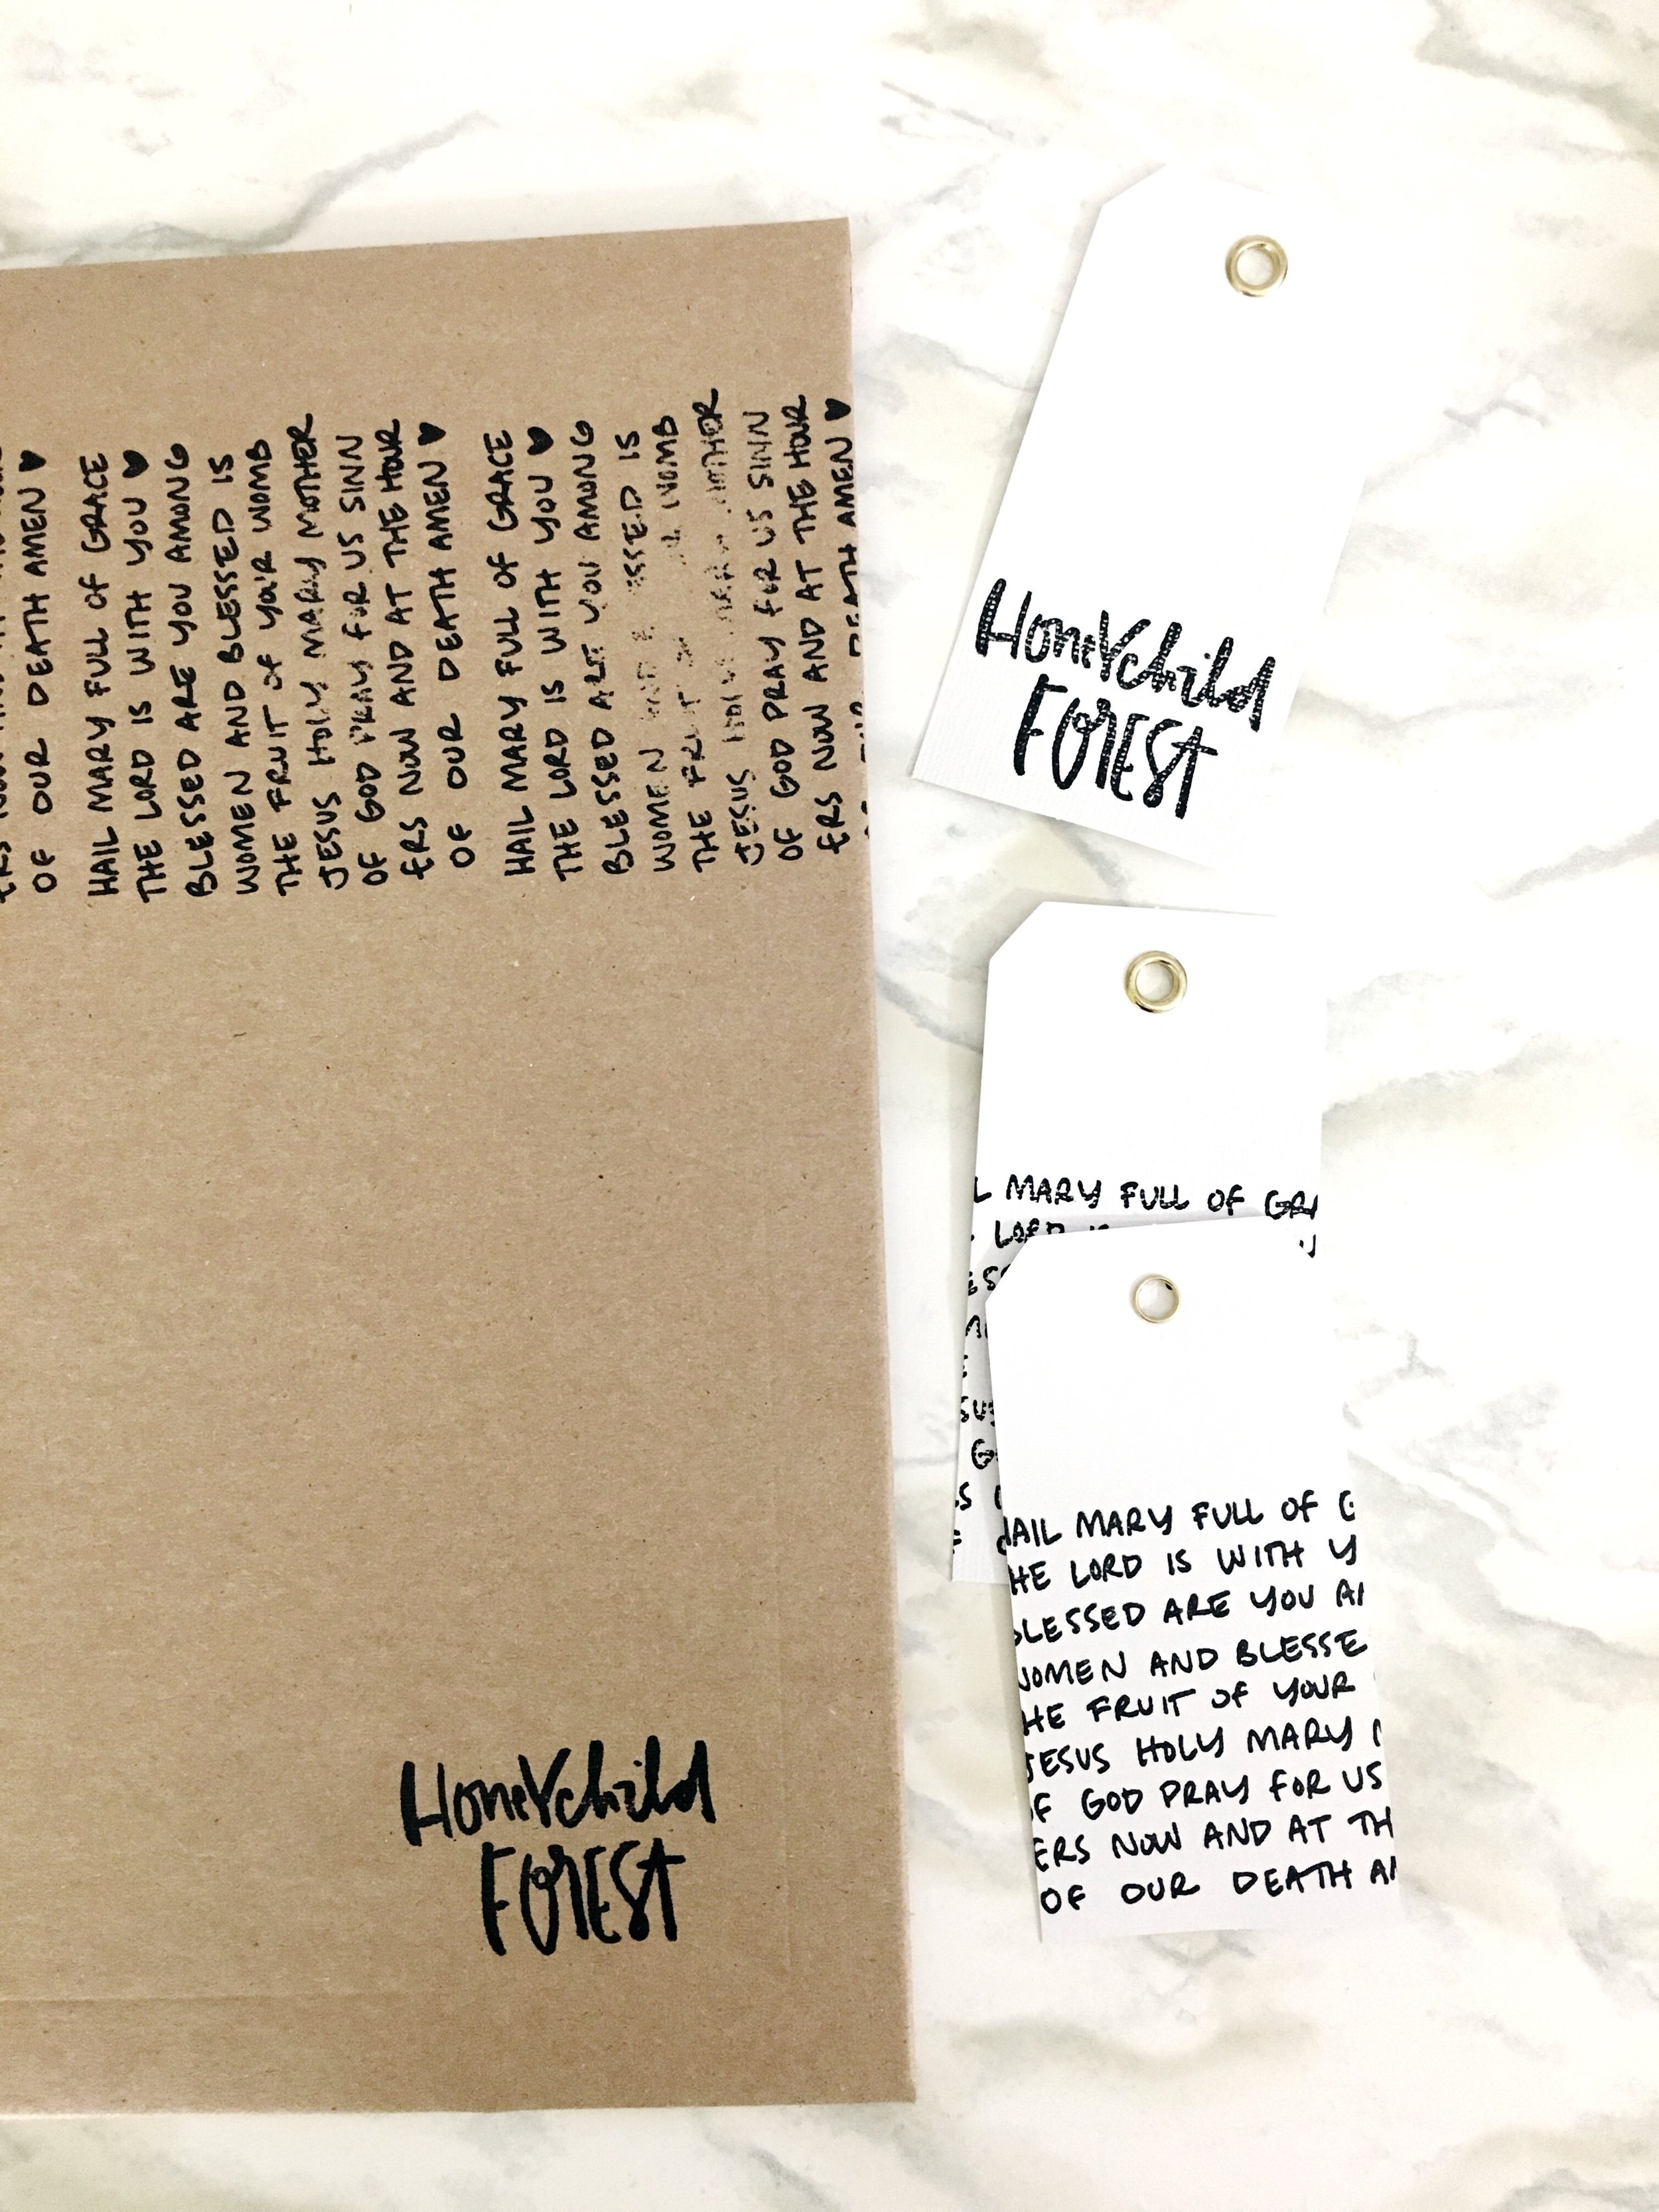 OF OUR DEATH AMEN ♥
HAIL MARY FULL OF GRACE
THE LORD IS WITH YOU ♥
BLESSED ARE YOU AMONG
WOMEN AND BLESSED IS
THE FRUIT OF YOUR WOMB
JESUS HOLY MARY MOTHER
OF GOD PRAY FOR US SINN
ERS NOW AND AT THE HOUR
OF OUR DEATH AMEN ♥
HAIL MARY FULL OF GRACE
THE LORD IS WITH YOU ♥
BLESSED ARE YOU AMONG
WOMEN ESSED IS
THE FRUIT WOMB
JESUS MOTHER
OF GOD PRAY FOR US SINN
ERS NOW AND AT THE HOUR
DEATH AMEN ♥
HoneYchild
FOREST
HoneYchild
FOREST
L MARY FULL OF GRA
LORD
HAIL MARY FULL OF G
HE LORD IS WITH Y
BLESSED ARE YOU A
WOMEN AND BLESSE
HE FRUIT OF YOUR
JESUS HOLY MARY
OF GOD PRAY FOR US
ERS NOW AND AT TH
OF OUR DEATH A